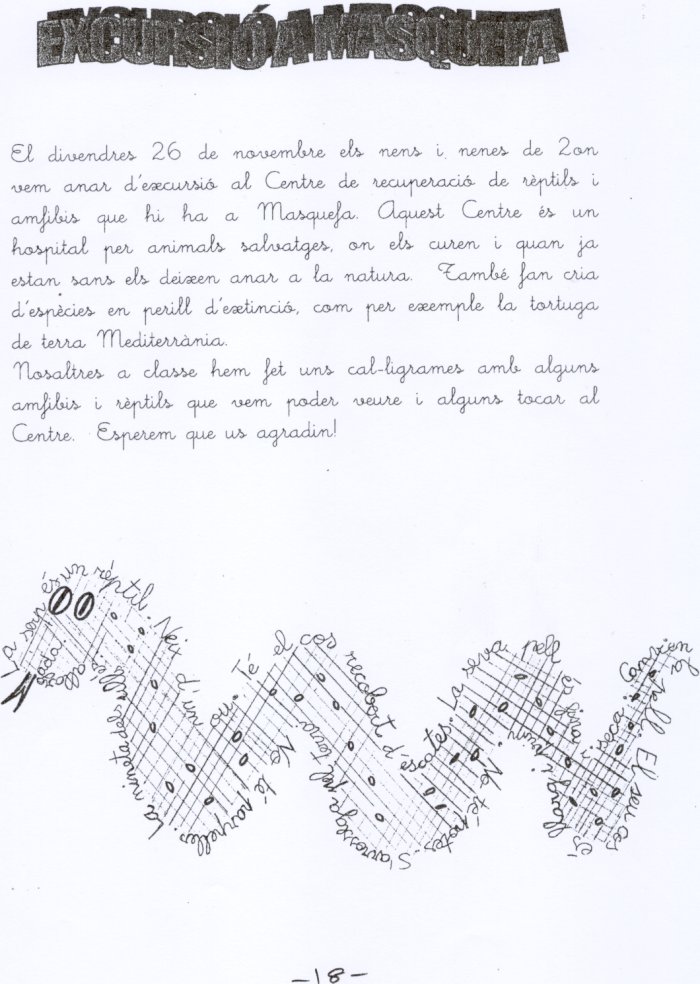 EXCURSIÓ A MASQUEFA
El divendres 26 de novembre els nens i nenes de 2on
vem anar d'excursió al Centre de recuperació de rèptils i
amfibis que hi ha a Masquefa. Aquest Centre és un
hospital per animals salvatges, on els curen i quan ja
estan sans els deixen anar a la natura. També fan cria
d'espècies en perill d'extinció, com per exemple la tortuga
de terra Mediterrània.
Nosaltres a classe hem fet uns cal-ligrames amb alguns
amfibis i rèptils que vem poder veure i alguns tocar al
Centre. Esperem que us agradin!
La serp és un rèptil. Neix d'un ou. Té el cos recobert d'escates. La seva pell és i seca. Canvien la pell. El seu cos és llarg i prim. No té potes. S'arrossega pel terra. No té parpelles. La nineta dels ulls és
-18-